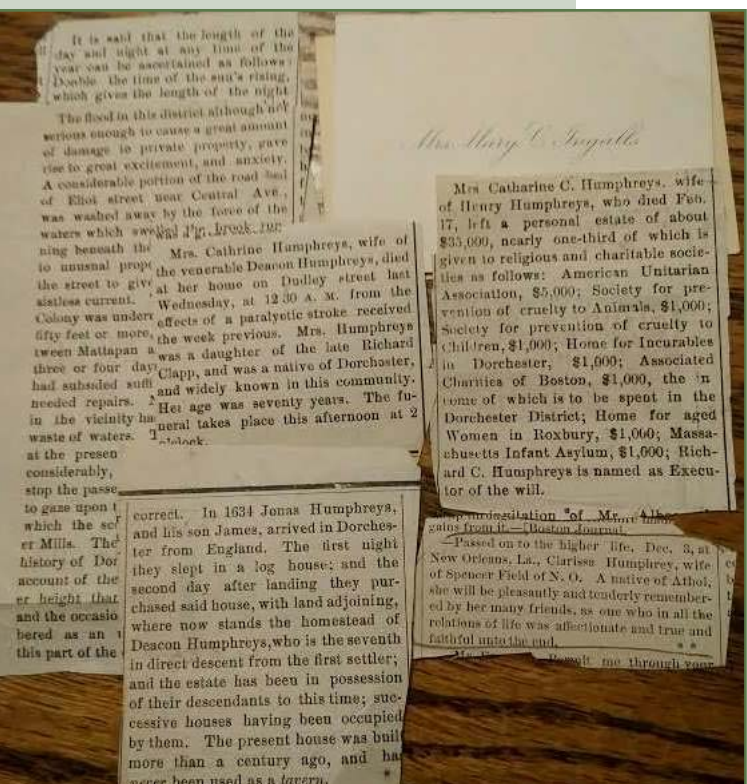 It is said that the length of the
day and night at any time of the
year can be ascertained as follows:
Double the time of the sun's rising,
which gives the length of the night
The flood in this district although not
serious enough to cause a great amount
of damage to private property, gave
rise to great excitement, and anxiety.
A considerable portion of the road bed
of Eliot street near Central Ave.,
was washed away by the force of the
waters which
ning beneath the
to unusual
the street to give
sistless current.
Colony was
fifty feet or more,
tween Mattapan
three or four day
had subsided
needed repairs.
in the vicinity ha
waste of waters.
at the presen
considerably,
stop the passe
to gaze upon
which the
er Mills. The
history of Dor
account of the
er height that
and the occasio
bered as an
this part of the
Mrs. Cathrine Humphreys, wife of
the venerable Deacon Humphreys, died
at her home on Dudley street last
Wednesday, at 12 30 A. M. from the
effects of a paralytic stroke received
the week previous. Mrs. Humphreys
was a daughter of the late Richard
Clapp, and was a native of Dorchester,
and widely known in this community.
Her age was seventy years. The fu-
neral takes place this afternoon at 2
o'clock.
correct. In 1634 Jonas Humphreys,
and his son James, arrived in Dorches-
ter from England. The first night
they slept in a log house; and the
second day after landing they pur-
chased said house, with land adjoining,
where now stands the homestead of
Deacon Humphreys,who is the seventh
in direct descent from the first settler;
and the estate has been in possession
of their descendants to this time; suc-
cessive houses having been occupied
by them. The present house was buil
more than a century ago, and ha
never been used as a tavern.
Mrs. Mary C. Ingalls
Mrs Catharine C. Humphreys. wife
of Henry Humphreys, who died Feb.
17, left a personal estate of about
$35,000, nearly one-third of which is
given to religious and charitable socie-
ties as follows: American Unitarian
Association, $5,000; Society for pre-
vention of cruelty to Animals, $1,000;
Society for prevention of cruelty to
Children, $1,000; Home for Incurables
in Dorchester, $1,000; Associated
Charities of Boston, $1,000, the in
come of which is to be spent in the
Dorchester District; Home for aged
Women in Roxbury, $1,000; Massa-
chusetts Infant Asylum, $1,000; Rich-
ard C. Humphreys is named as Execu-
tor of the will.
of Mr.
gains from it.—[Boston Journal.
—Passed on to the higher life, Dec. 3, at
New Orleans, La., Clarissa Humphrey, wife
of Spencer Field of N. O. A native of Athol,
she will be pleasantly and tenderly remember-
ed by her many friends, as one who in all the
relations of life was affectionate and true and
faithful unto the end. * *
me through your